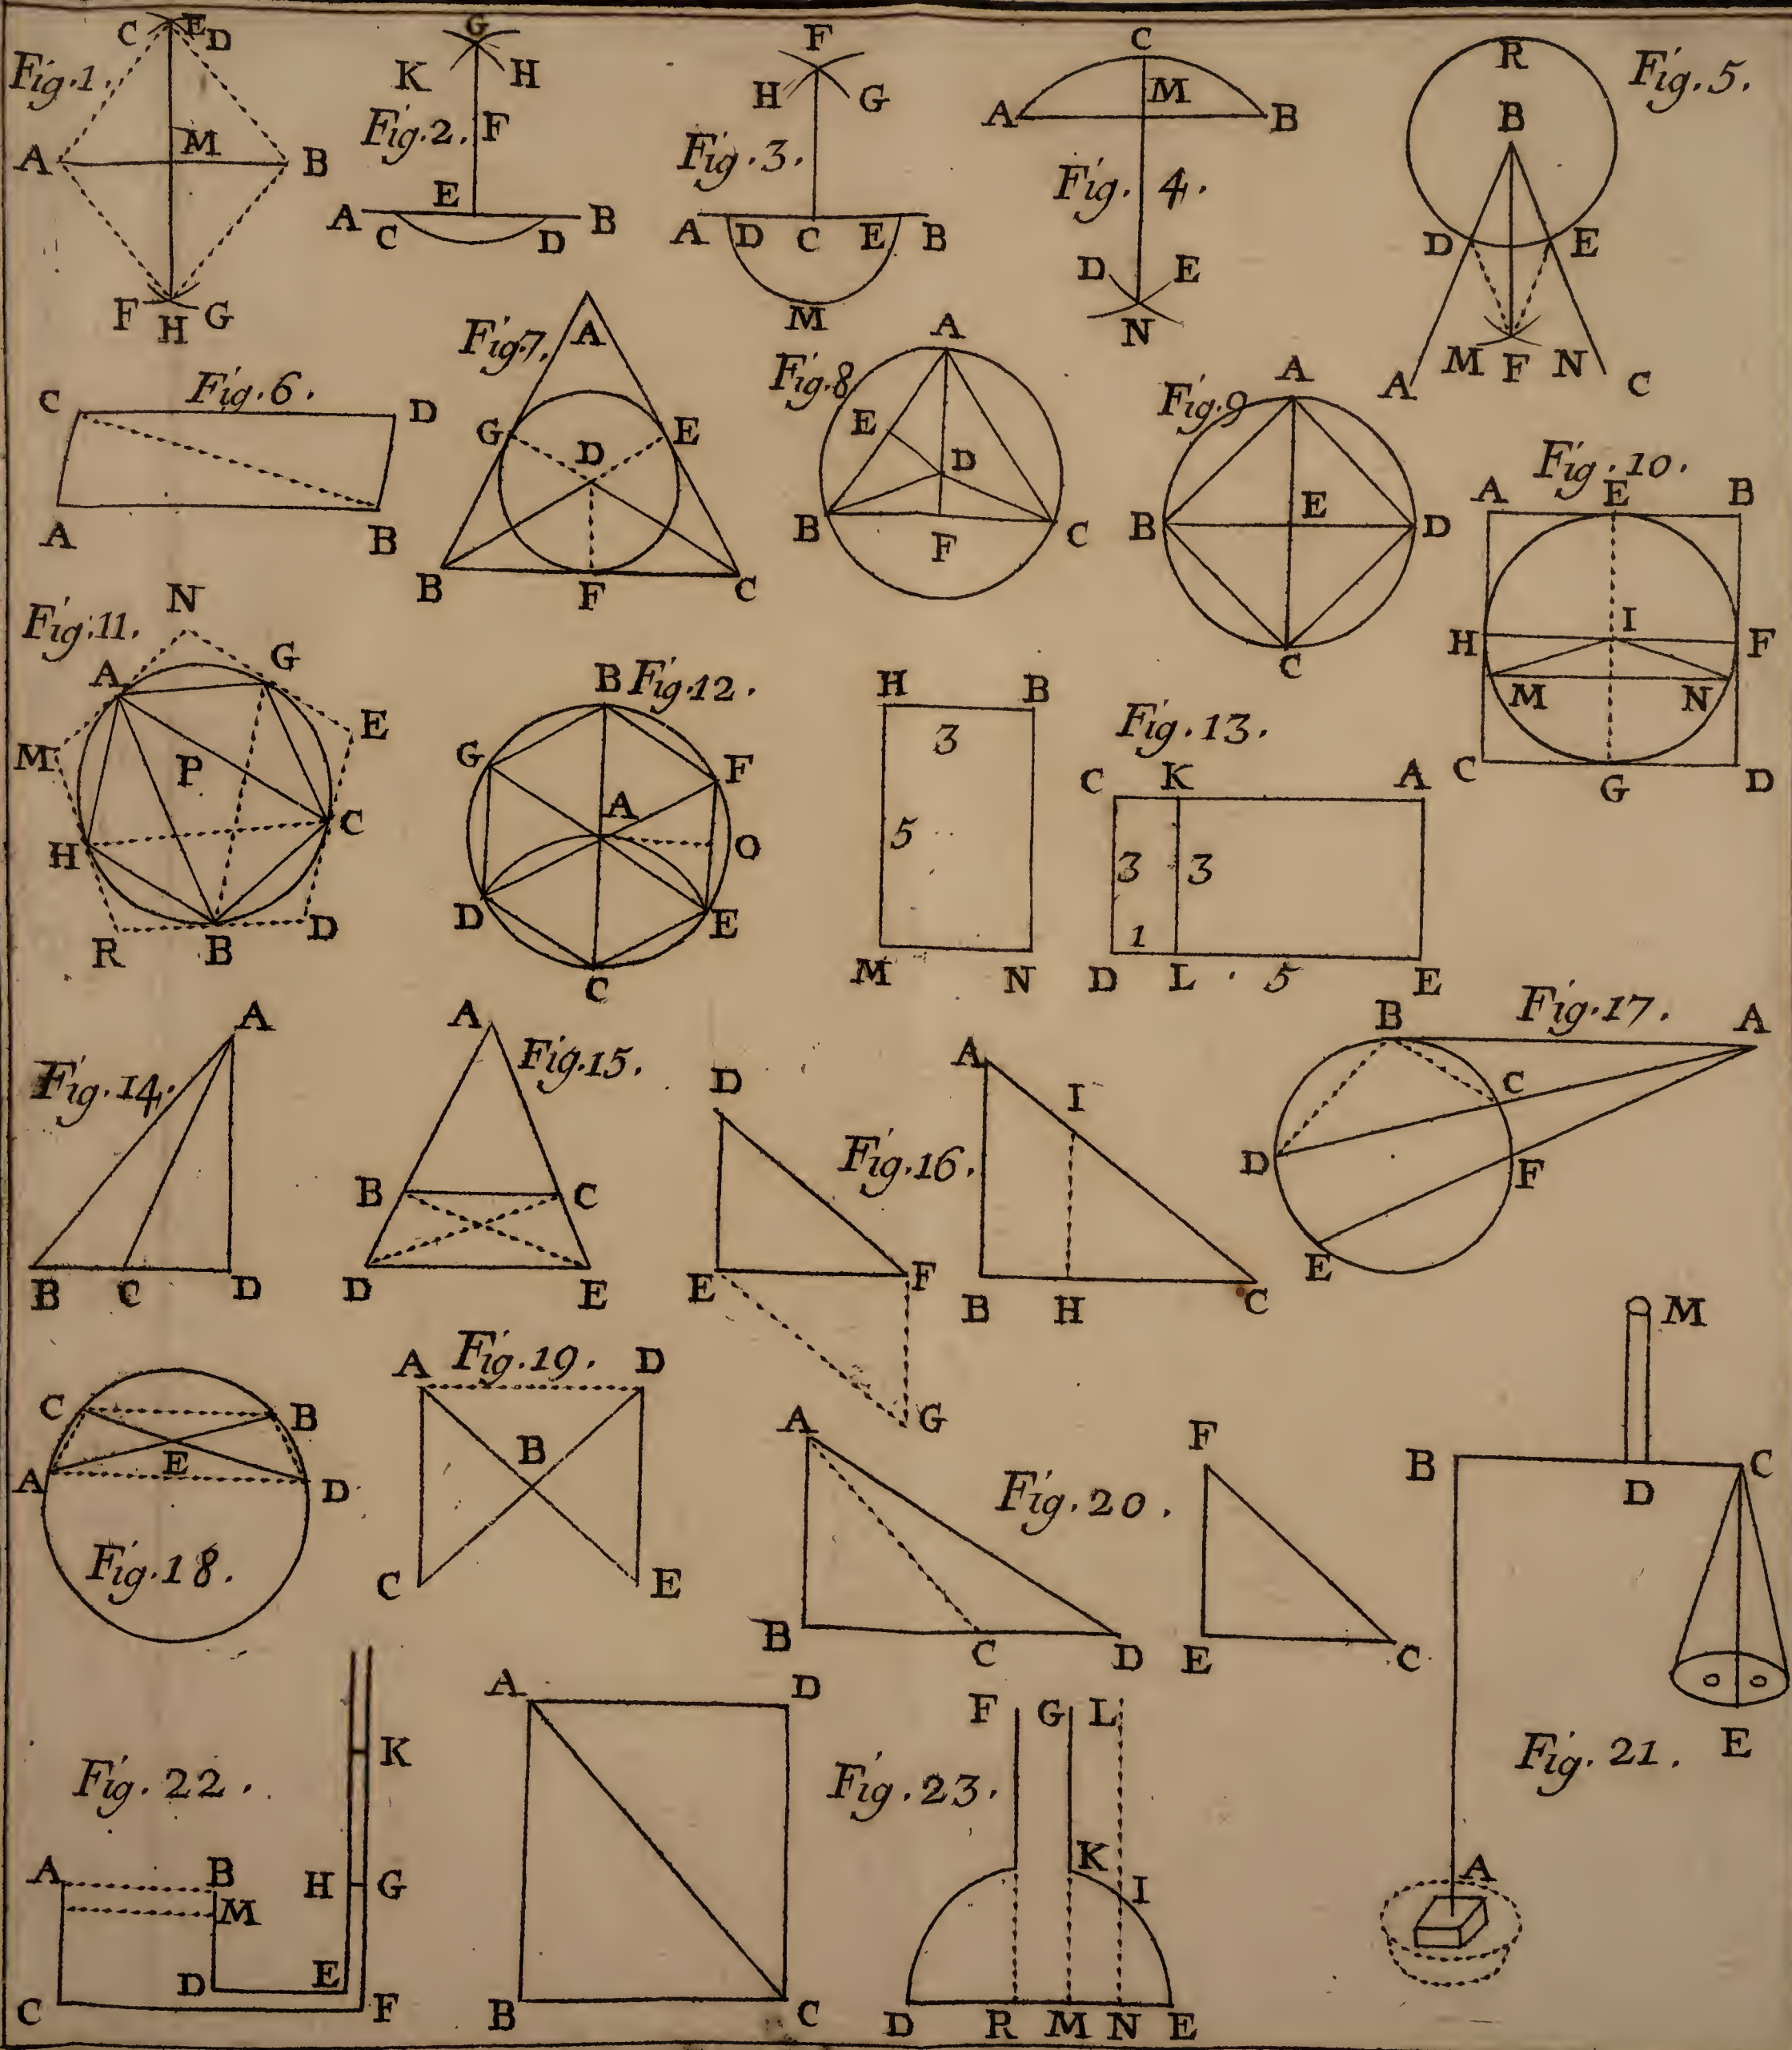 Fig.1.
C E D
A M B
F H G
Fig.2.
G
K H
F
E
A C D B
Fig.3.
F
H G
A D C E B
M
Fig.4.
C
M
A B
D E
N
Fig.5.
R
B
D E
A M F N C
Fig.6.
C D
A B
Fig.7.
A
G D E
B F C
Fig.8
A
E D
B F C
Fig.9
A
B E D
C
Fig.10.
A E B
H I F
M N
C G D
Fig.11.
N
A G
M P E
H C
R B D
Fig.12.
B
G F
A O
D E
C
H B
3
5
M N
Fig.13.
C K A
3 3
1
D L . 5 E
Fig.14.
A
B C D
Fig.15.
A
B C
D E
Fig.16.
D
E F
G
A
I
B H C
Fig.17.
B A
C
D F
E
Fig.18.
C B
E
A D
Fig.19.
A D
B
C E
Fig.20.
A
B C D
F
E C
Fig.21.
M
B D C
E
A
Fig.22.
K
A B H G
M
D E
C F
A D
B C
Fig.23.
F G L
K I
D R M N E